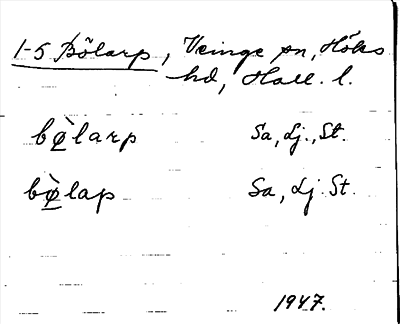 1-5 Bölarp, Veinge sn, Höks
hd, Hall. l.
bø̀larp Sa, Lj., St.
bø̀lap Sa, Lj. St.
1947.